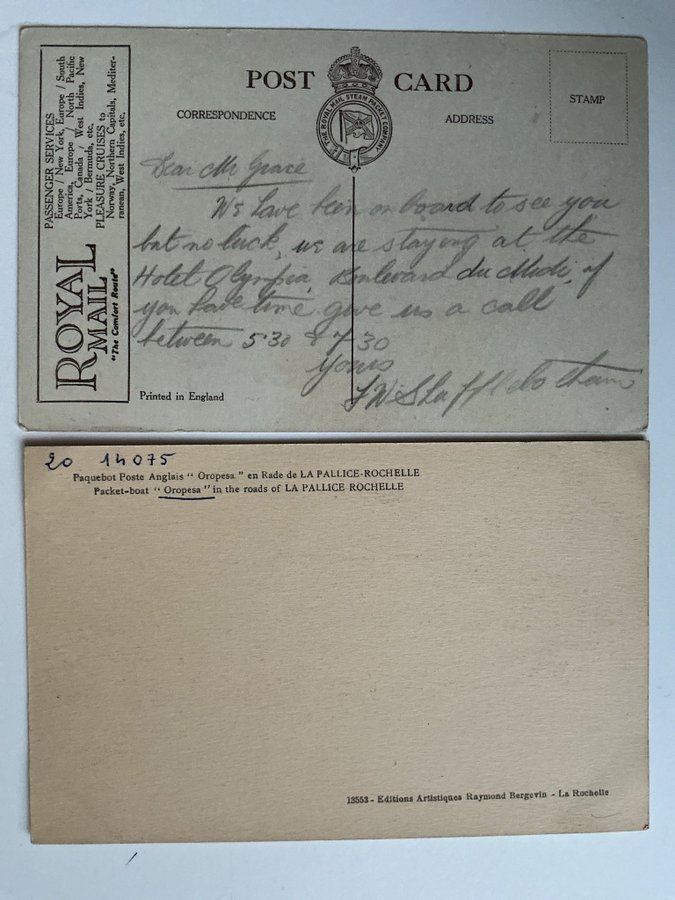 POST CARD
THE ROYAL MAIL STEAM PACKET COMPANY
CORRESPONDENCE
ADDRESS
STAMP
PASSENGER SERVICES
Europe / New York, Europe / South
America, Europe / North Pacific
Ports, Canada West Indies, New
York / Bermuda, etc.
PLEASURE CRUISES to
Norway, Northern Capitals, Mediter-
ranean, West Indies, etc.
ROYAL
MAIL
"The Comfort Route"
Dear Mr Grace
We have been on board to see you
but no luck, we are staying at the
Hotel Olympia, Boulevard du Midi, if
you have time give us a call
between 5.30 & 7.30
Yours
Printed in England
20 14075
Paquebot Poste Anglais " Oropesa " en Rade de LA PALLICE-ROCHELLE
Packet-boat " Oropesa " in the roads of LA PALLICE ROCHELLE
13553 - Editions Artistiques Raymond Bergevin - La Rochelle